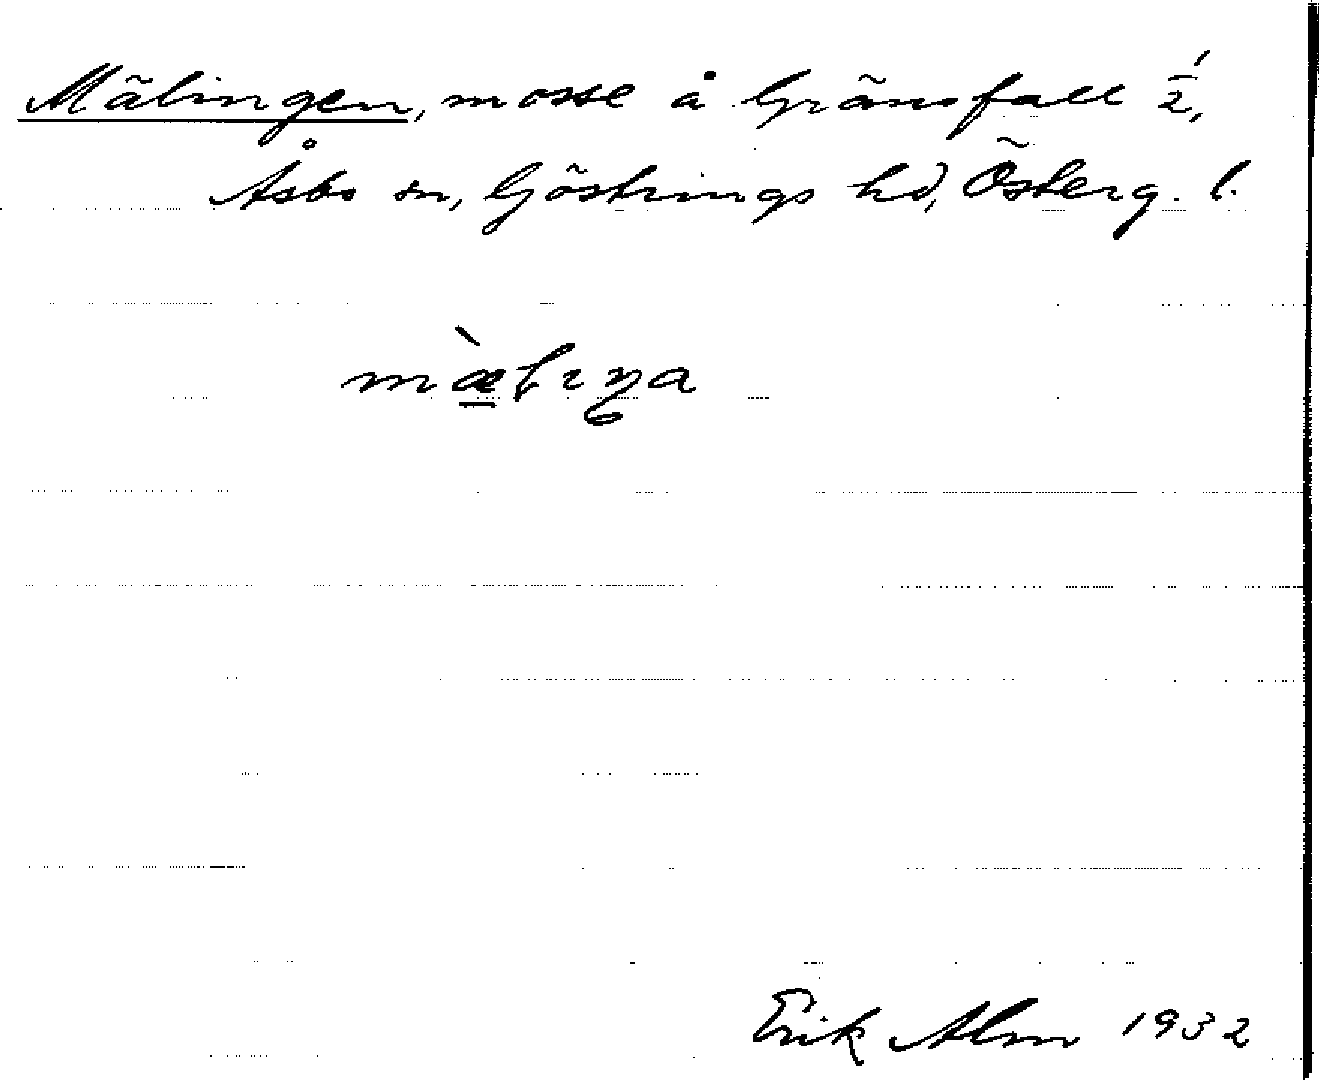 Mälingen, mosse å Gränsfall 1/2,
Åsbo sn, Göstrings hd, Österg. l.
mæ̀lıŋa
Erik Alm 1932